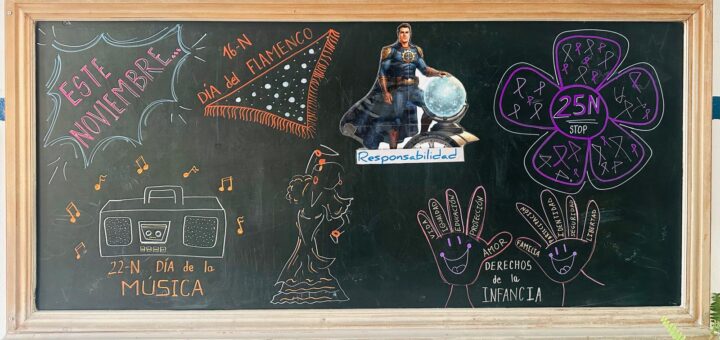 ESTE
NOVIEMBRE...
16-N
DÍA del FLAMENCO
Responsabilidad
25N
STOP
22-N DÍA de la
MÚSICA
VIDA
IGUALDAD
EDUCACIÓN
PROTECCIÓN
AMOR
FAMILIA
PARTICIPACIÓN
IDENTIDAD
SEGURIDAD
LIBERTAD
DERECHOS
de la
INFANCIA